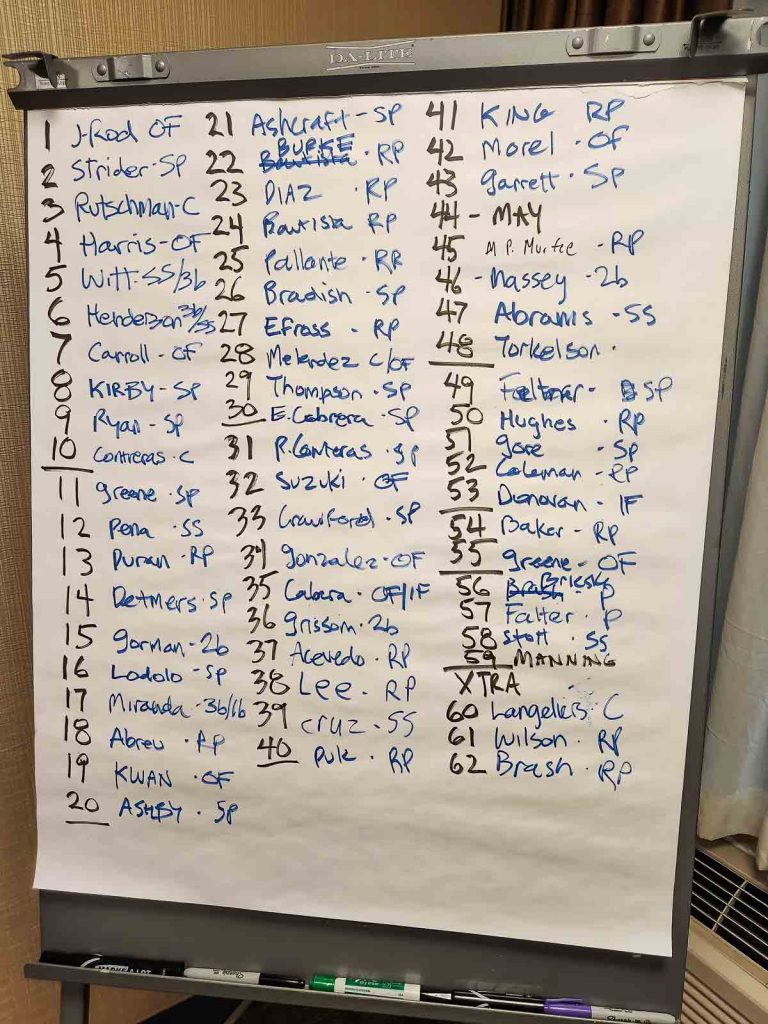 DA-LITE
1 J-Rod OF
2 Strider · SP
3 Rutschman - C
4 Harris - OF
5 Witt - SS/3b
6 Henderson 3b/SS
7 Carroll - OF
8 KIRBY - SP
9 Ryan - SP
10 Contreras · C
11 greene · SP
12 Pena · SS
13 Duran · RP
14 Detmers · SP
15 gorman - 2b
16 Lodolo - SP
17 Miranda · 3b/1b
18 Abreu · RP
19 KWAN · OF
20 ASHBY · SP
21 Ashcraft - SP
22 BURKE · RP
23 DIAZ · RP
24 Bautista RP
25 Pallante · RP
26 Bradish · SP
27 Efross · RP
28 Melendez C/OF
29 Thompson · SP
30 E. Cabrera · SP
31 R. Conteras · SP
32 Suzuki · OF
33 Crawford · SP
34 gonzalez - OF
35 Cabara · OF/IF
36 grissom · 2b
37 Acevedo · RP
38 Lee · RP
39 cruz · SS
40 Puk · RP
41 KING RP
42 Morel · OF
43 garrett · SP
44 - MAY
45 M P. Murfee - RP
46 - Massey - 2b
47 Abrams - SS
48 Torkelson ·
49 Feltner - SP
50 Hughes · RP
51 gore · SP
52 Coleman - RP
53 Donovan - IF
54 Baker - RP
55 greene - OF
56 Brieske P
57 Falter · P
58 Stott · SS
59 MANNING
XTRA
60 Langeliers · C
61 Wilson · RP
62 Brash · RP